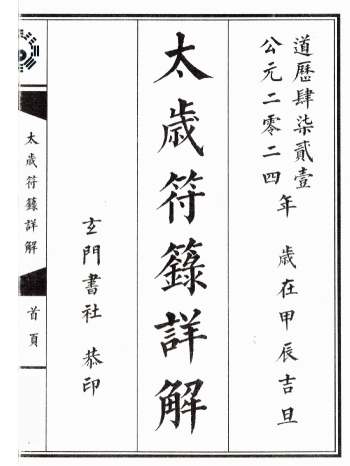 道歷肆柒貳壹
公元二零二四年 歲在甲辰吉旦
太歲符籙詳解
玄門書社 恭印
太歲符籙詳解
首頁